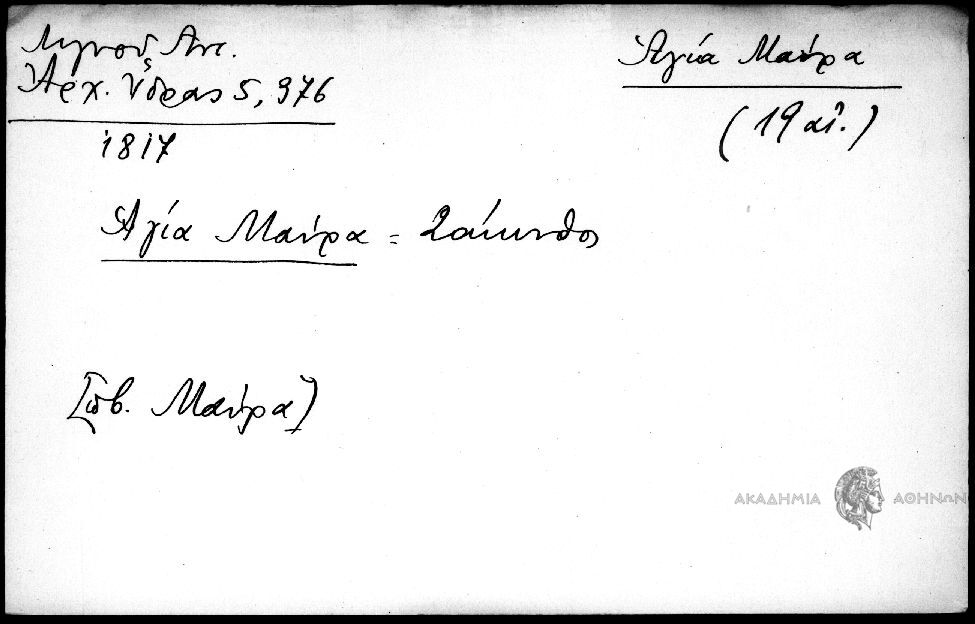 Λιγνοῦ Ἀντ.
Ἀρχ. Ὕδρας 5, 376
1817
Ἁγία Μαύρα
(19 αἰ.)
Ἁγία Μαύρα = Ζάκυνθος
[ἰδβ. Μαύρα]
ΑΚΑΔΗΜΙΑ ΑΘΗΝΩΝ